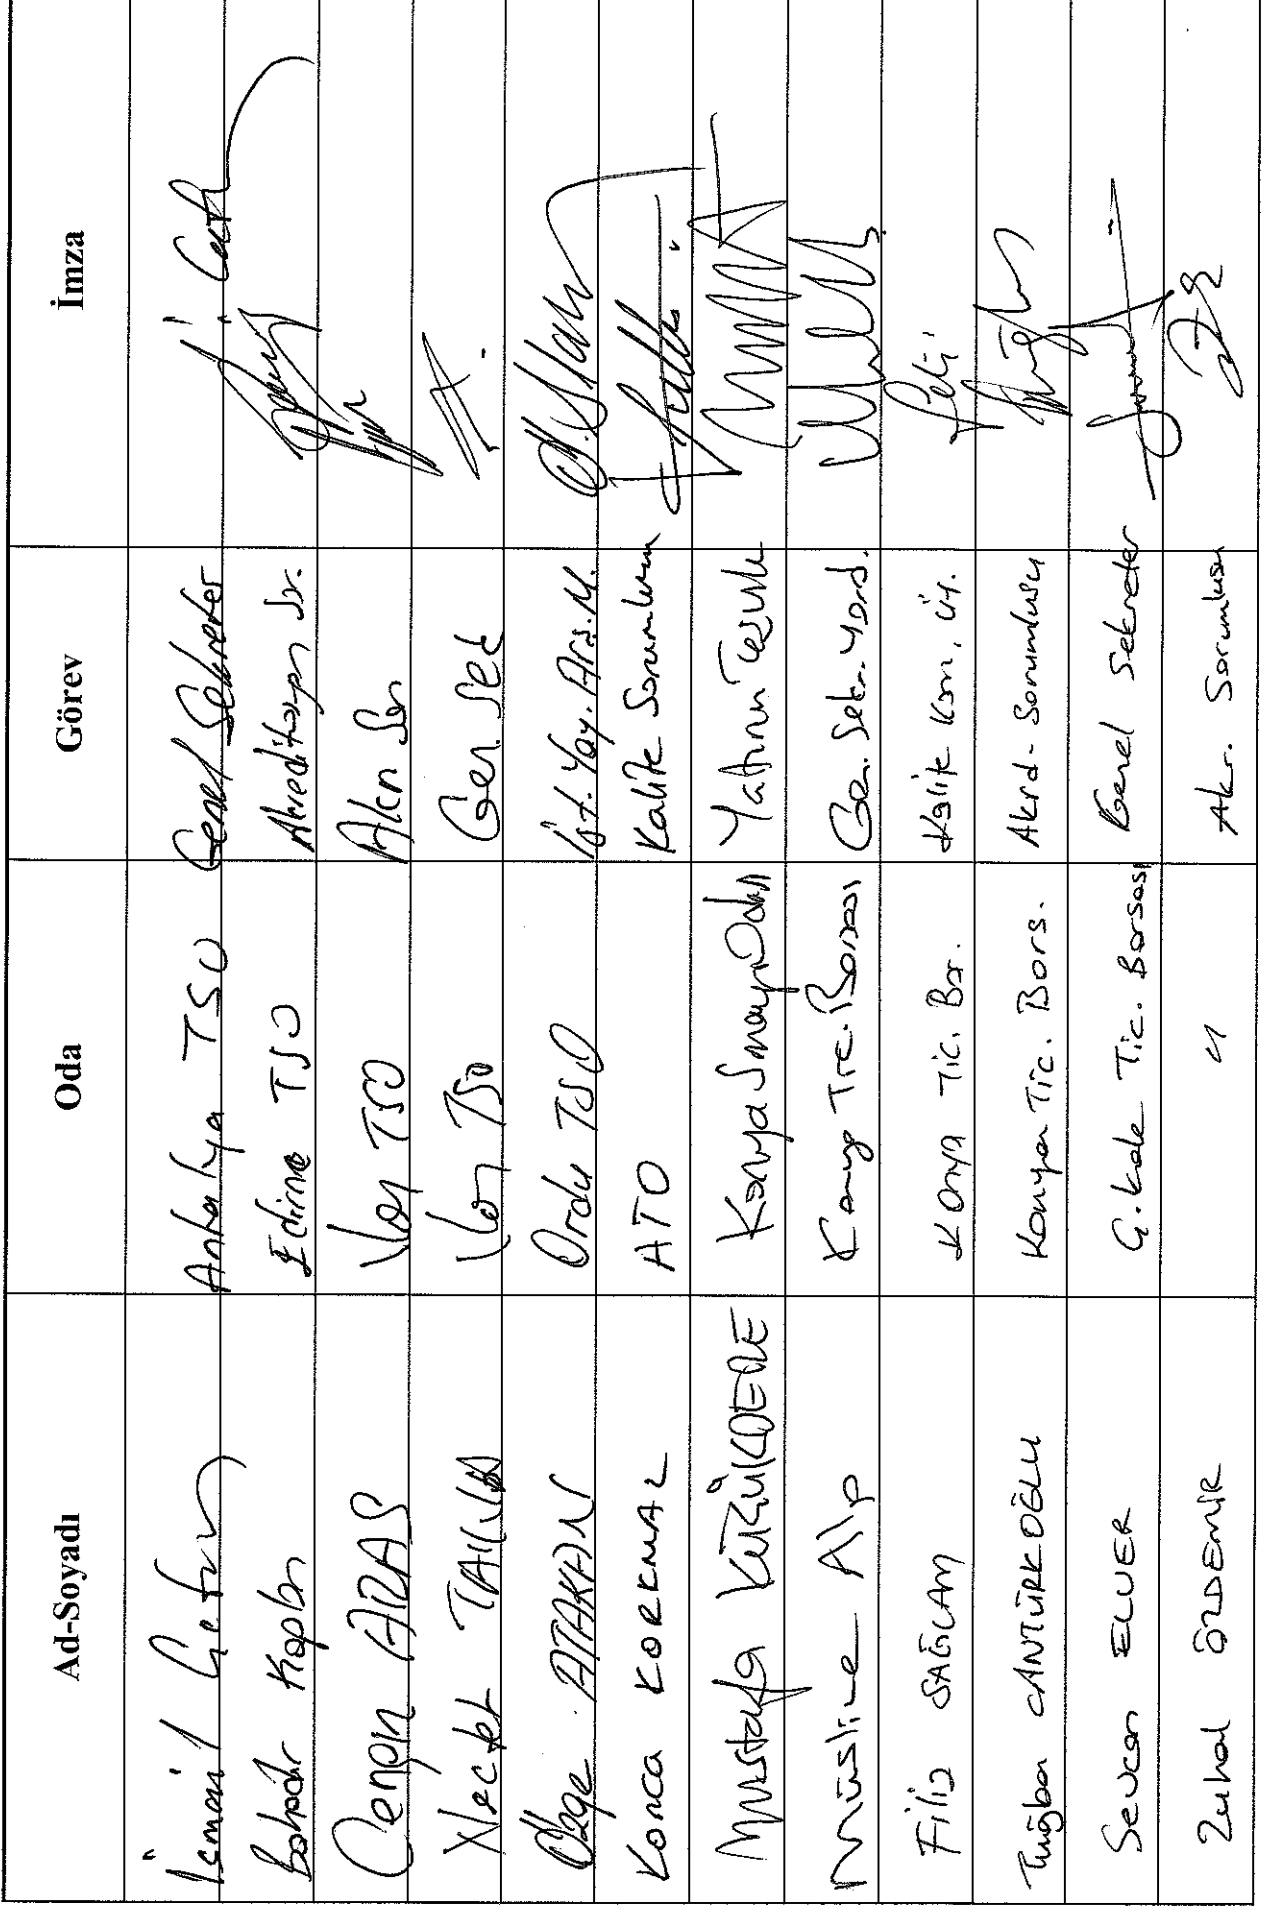 Ad-Soyadı Oda Görev İmza
İsmail Çetin Antakya TSO Genel Sekreter
Bahadır Kaplan Edirne TSO Akreditasyon Sr.
Cengiz ARAS Van TSO Akr Sor
Necdet Van TSO Gen. Sek
Özge ATAKAN Ordu TSO İst. Yay. Arş. M.
Konca KORKMAZ ATO Kalite Sorumlusu
Mustafa KÜÇÜKDERE Konya Sanayi Odası
Müslime Alp Konya Tic. Borsası Gen. Sekr. Yard.
Filiz SAĞLAM Konya Tic. Bor. Kalite Kom. Üy.
Tuğba CANTÜRKOĞLU Konya Tic. Bors. Akrd. Sorumlusu
Sevcan ELVER Ç.Kale Tic. Borsası Genel Sekreter
Zuhal ÖZDEMİR " Akr. Sorumlusu